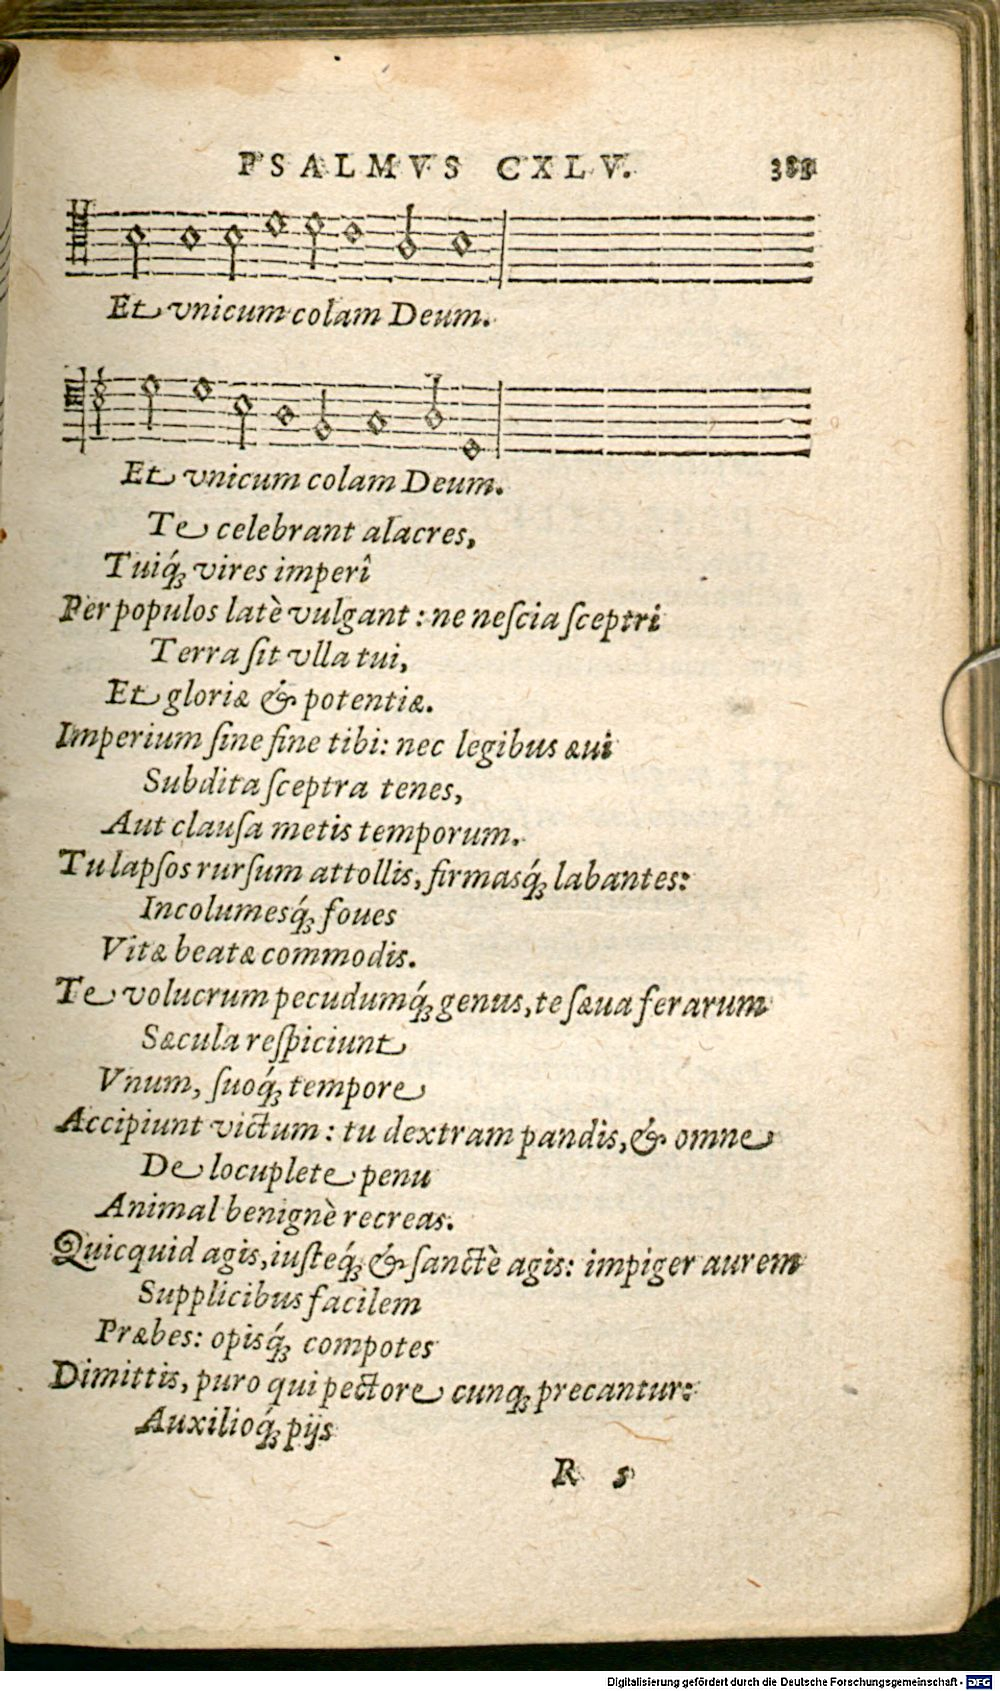 PSALMVS CXLV.
Et vnicum colam Deum.
Et vnicum colam Deum.
Te celebrant alacres,
Tuiq́ꝫ vires imperî
Per populos latè vulgant : ne neſcia ſceptri
Terra ſit vlla tui,
Et gloriæ & potentiæ.
Imperium ſine fine tibi: nec legibus æui
Subdita ſceptra tenes,
Aut clauſa metis temporum.
Tu lapſos rurſum attollis, firmasq́ꝫ labantes:
Incolumesq́ꝫ foues
Vitæ beatæ commodis.
Te volucrum pecudumq́ꝫ genus, te ſæua ferarum
Sæcula reſpiciunt
Vnum, ſuoq́ꝫ tempore
Accipiunt victum : tu dextram pandis, & omne
De locuplete penu
Animal benignè recreas.
Quicquid agis, iuſteq́ꝫ & ſanctè agis: impiger aurem
Supplicibus facilem
Præbes: opisq́ꝫ compotes
Dimittis, puro qui pectore cunqꝫ precantur:
Auxilioq́ꝫ pijs
R s
Digitalisierung gefördert durch die Deutsche Forschungsgemeinschaft - DFG